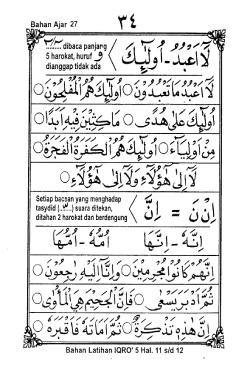 Bahan Ajar 27
٣٤
........ dibaca panjang
5 harokat, huruf و
dianggap tidak ada
لَآ اَعْبُدُ - اُولٰٓئِكَ
لَآ اَعْبُدُ مَا تَعْبُدُوْنَ ○ اُولٰٓئِكَ هُمُ الْمُفْلِحُوْنَ ○
اُولٰٓئِكَ عَلٰى هُدًى ○ مَاكِثِيْنَ فِيْهِ اَبَدًا ○
مِنْ اَوْلِيَآءَ ○ اُولٰٓئِكَ هُمُ الْكَفَرَةُ الْفَجَرَةُ ○
لَآ اِلٰى هٰٓؤُلَآءِ وَلَآ اِلٰى هٰٓؤُلَآءِ ○
Setiap bacaan yang menghadap
tasydid (...ّ...) suara ditekan,
ditahan 2 harokat dan berdengung
اِنْنَ = اِنَّ
اِنَّهٗ - اِنَّهَا اُمُّهٗ - اُمُّهَا
اِنَّهُمْ كَانُوْا مُجْرِمِيْنَ ○ وَاِنَّآ اِلَيْهِ رٰجِعُوْنَ ○
ثُمَّ اَدْبَرَ يَسْعٰى ○ فَاِنَّ الْجَحِيْمَ هِيَ الْمَأْوٰى ○
اِنَّ هٰذِهٖ تَذْكِرَةٌ ○ ثُمَّ اَمَاتَهٗ فَاَقْبَرَهٗ ○
Bahan Latihan IQRO' 5 Hal. 11 s/d 12